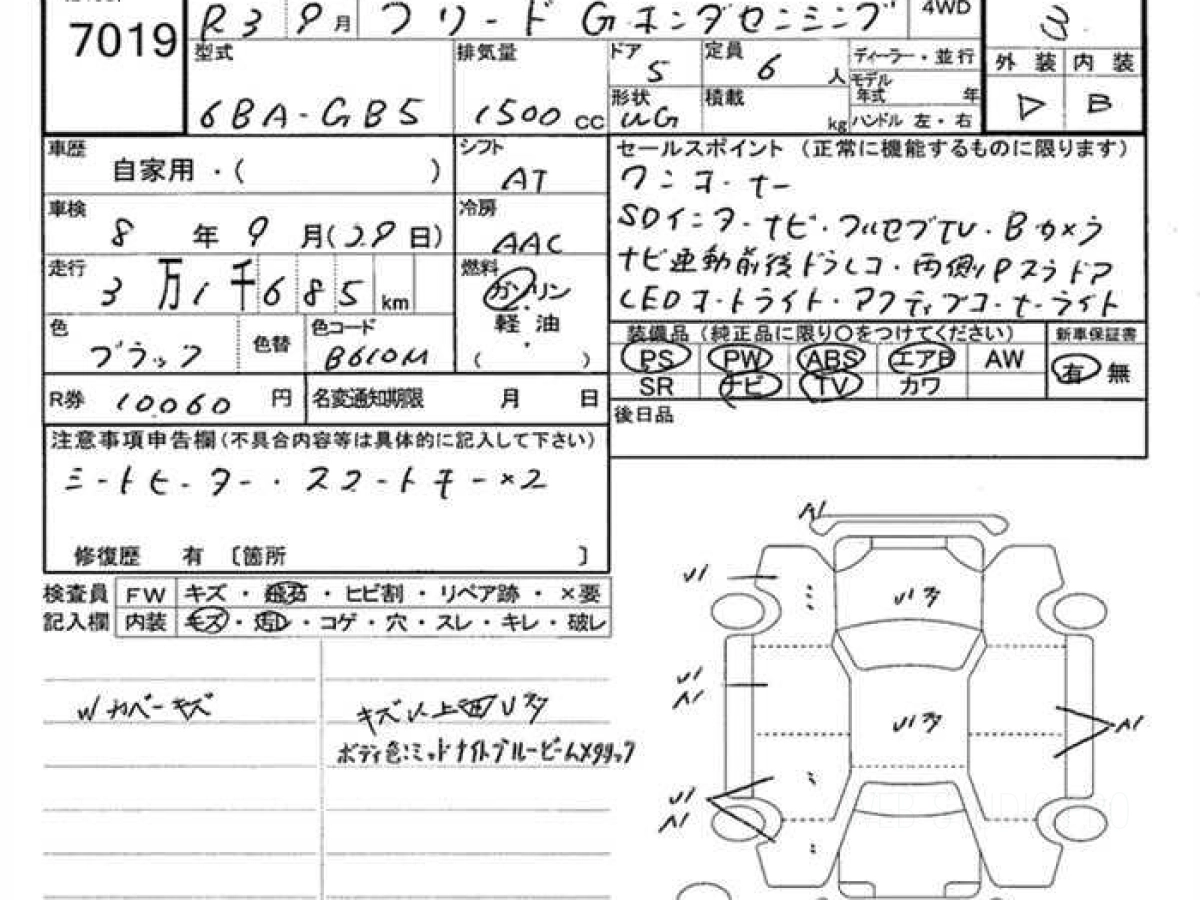 7019
R3 9月 フリード Gホンダセンシング 4WD
3
型式 6BA-GB5
排気量 1500 cc
ドア 5
定員 6 人
ディーラー・並行
モデル年式 年
形状 UG
積載 kg
ハンドル 左・右
外装 内装
B
車歴 自家用・( )
シフト AT
車検 8年9月(29日)
冷房 AAC
走行 3万1千685 km
燃料 ガソリン
軽油
( )
色 ブラック 色替
色コード B610M
R券 10060 円
名変通知期限 月 日
セールスポイント (正常に機能するものに限ります)
ワンオーナー
SDインターナビ・フルセグTV・Bカメラ
ナビ連動前後ドラレコ・両側Pスラドア
LEDオートライト・アクティブコーナーライト
装備品(純正品に限り○をつけてください) 新車保証書
PS PW ABS エアB AW 有 無
SR ナビ TV カワ
後日品
注意事項申告欄(不具合内容等は具体的に記入して下さい)
シートヒーター・スマートキー×2
修復歴 有 〔箇所 〕
検査員 FW キズ・飛石・ヒビ割・リペア跡・×要
記入欄 内装 キズ・汚れ・コゲ・穴・スレ・キレ・破レ
Wカバーキズ
ボディ色:ミッドナイトブルービームメタリック
A1
U1
U1
A1
A1
U1
A1